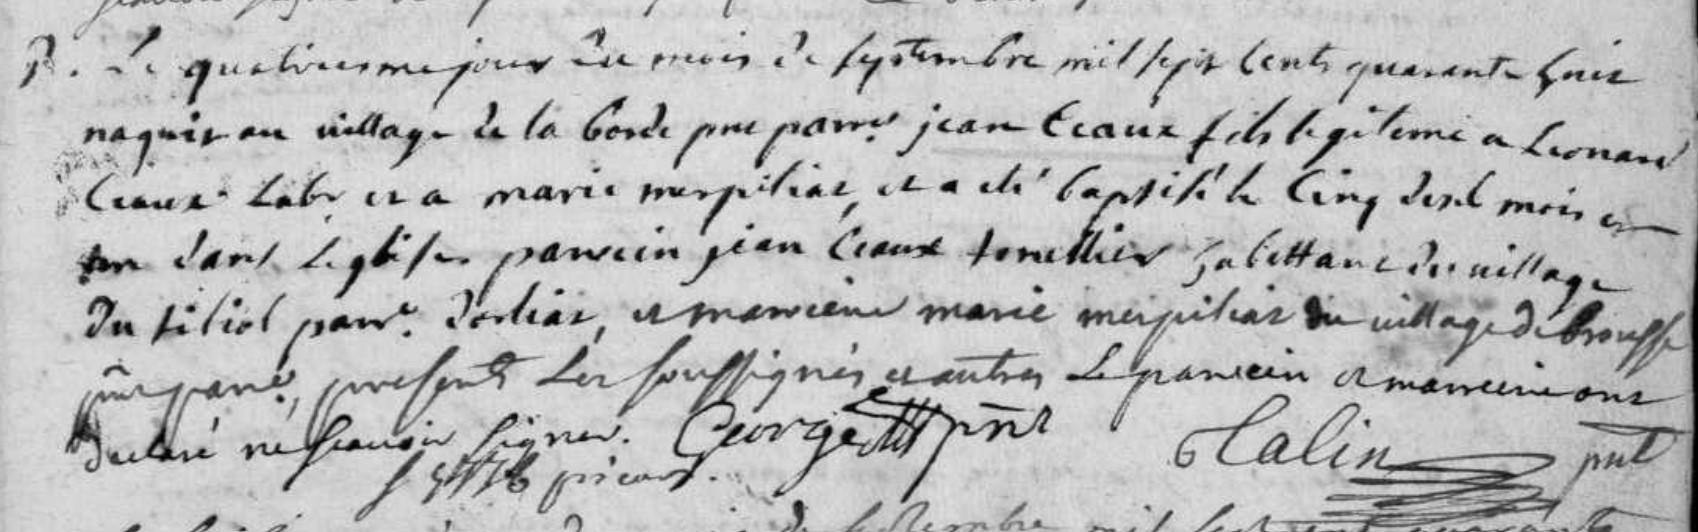 B. Le quatriesme jour du mois de septembre mil sept cents quarante huit
naquit au village de la borde pnt parr.e jean Ceaux fils legitime a Leonard
Ceaux Labr et a marie merpiliat, et a eté baptisé le Cinq desd mois et
an dans Leglise parrein jean Ceaux tonellier habittant du village
du tiliol parr.e et marreine marie merpiliat du village de brousse
pnte parr.e, presents Les soussignés et autres Le parrein et marreine ont
declaré ne scavoir signer. George pnt Talin pnt
prieur.
septembre mil sept cent quarante